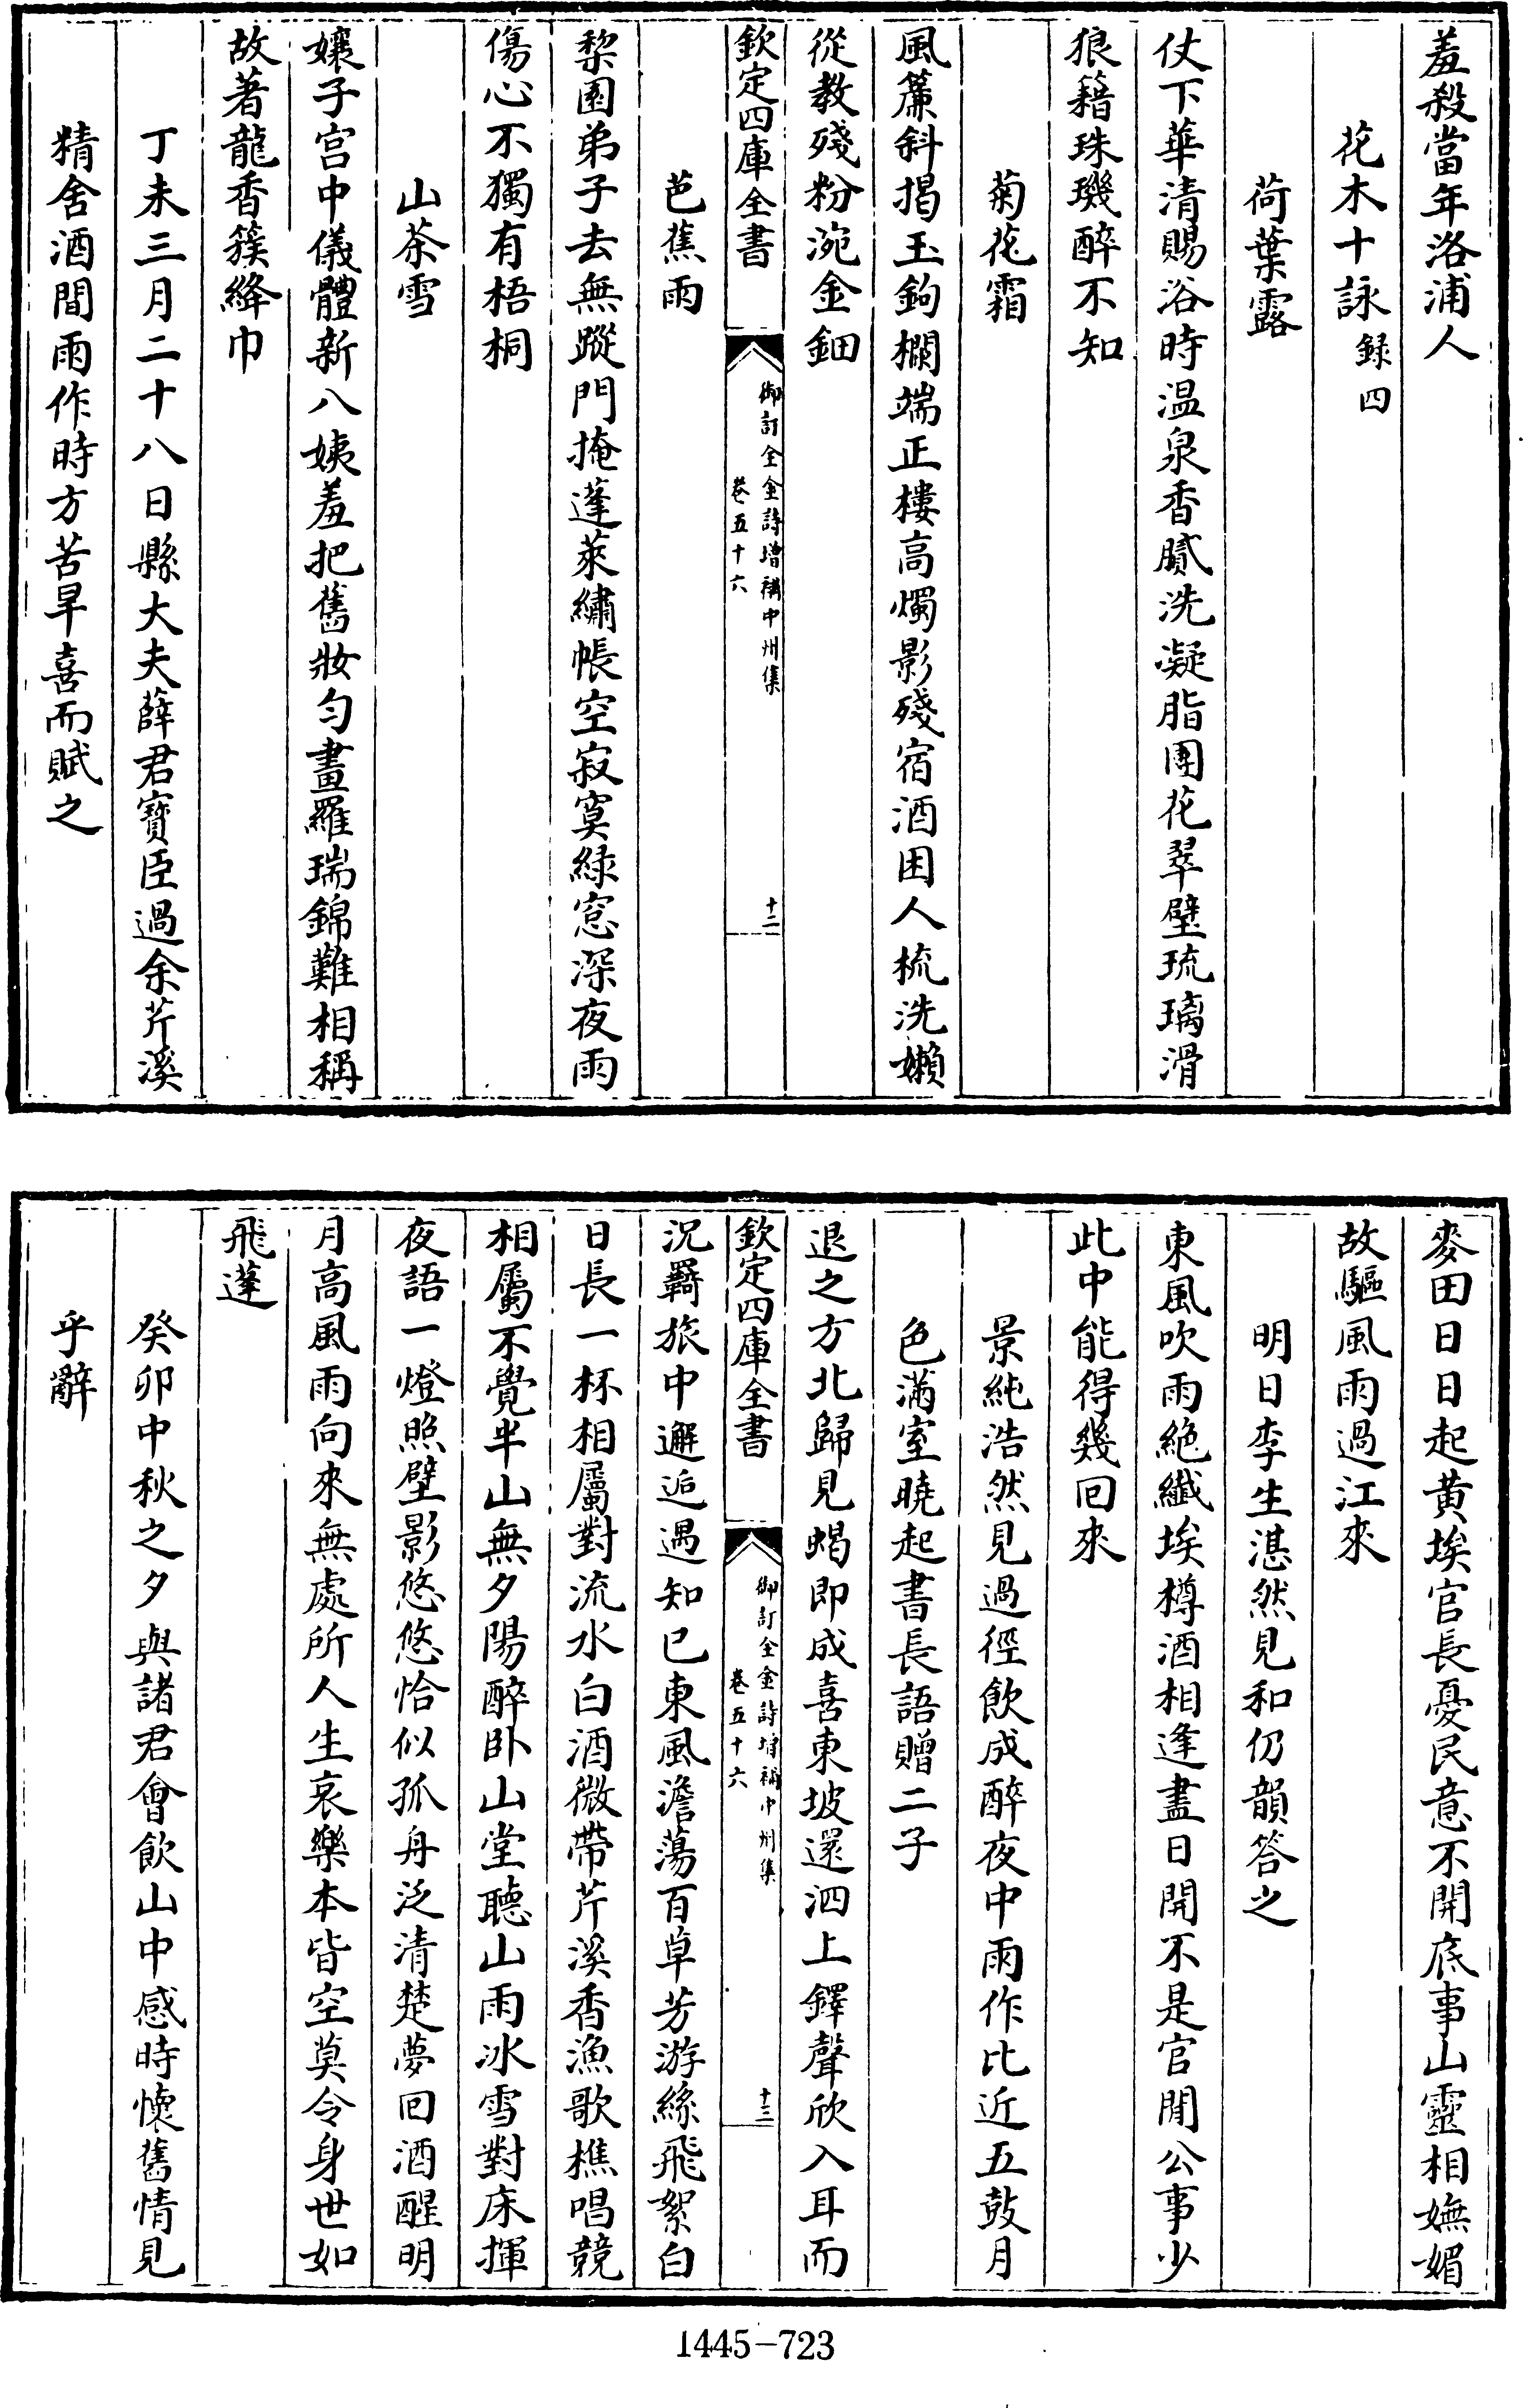 羞殺當年洛浦人
花木十詠録四
荷葉露
仗下華清賜浴時温泉香膩洗凝脂團花翠壁琉璃滑
狼籍珠璣醉不知
菊花霜
風簾斜揭玉鉤欄端正樓高燭影殘宿酒困人梳洗嬾
從教殘粉涴金鈿
欽定四庫全書
御訂全金詩增補中州集
卷五十六
十二
芭蕉雨
棃園弟子去無蹤門掩蓬萊繡帳空寂寞緑窓深夜雨
傷心不獨有梧桐
山茶雪
孃子宫中儀體新八姨羞把舊妝勻畫羅瑞錦難相稱
故著龍香簇絳巾
丁未三月二十八日縣大夫薛君寶臣過余芹溪
精舍酒間雨作時方苦旱喜而賦之
麥田日日起黄埃官長憂民意不開底事山靈相嫵媚
故驅風雨過江來
明日李生湛然見和仍韻答之
東風吹雨絶纖埃樽酒相逢盡日開不是官閒公事少
此中能得幾回來
景純浩然見過徑飲成醉夜中雨作比近五鼓月
色滿室曉起書長語贈二子
退之方北歸見蝎即成喜東坡還泗上鐸聲欣入耳而
欽定四庫全書
御訂全金詩增補中州集
卷五十六
十三
況羇旅中邂逅遇知已東風澹蕩百草芳游絲飛絮白
日長一杯相屬對流水白酒微帶芹溪香漁歌樵唱競
相屬不覺半山無夕陽醉卧山堂聽山雨冰雪對床揮
夜語一燈照壁影悠悠恰似孤舟泛清楚夢回酒醒明
月高風雨向來無處所人生哀樂本皆空莫令身世如
飛蓬
癸卯中秋之夕與諸君會飲山中感時懷舊情見
乎辭
1445-723